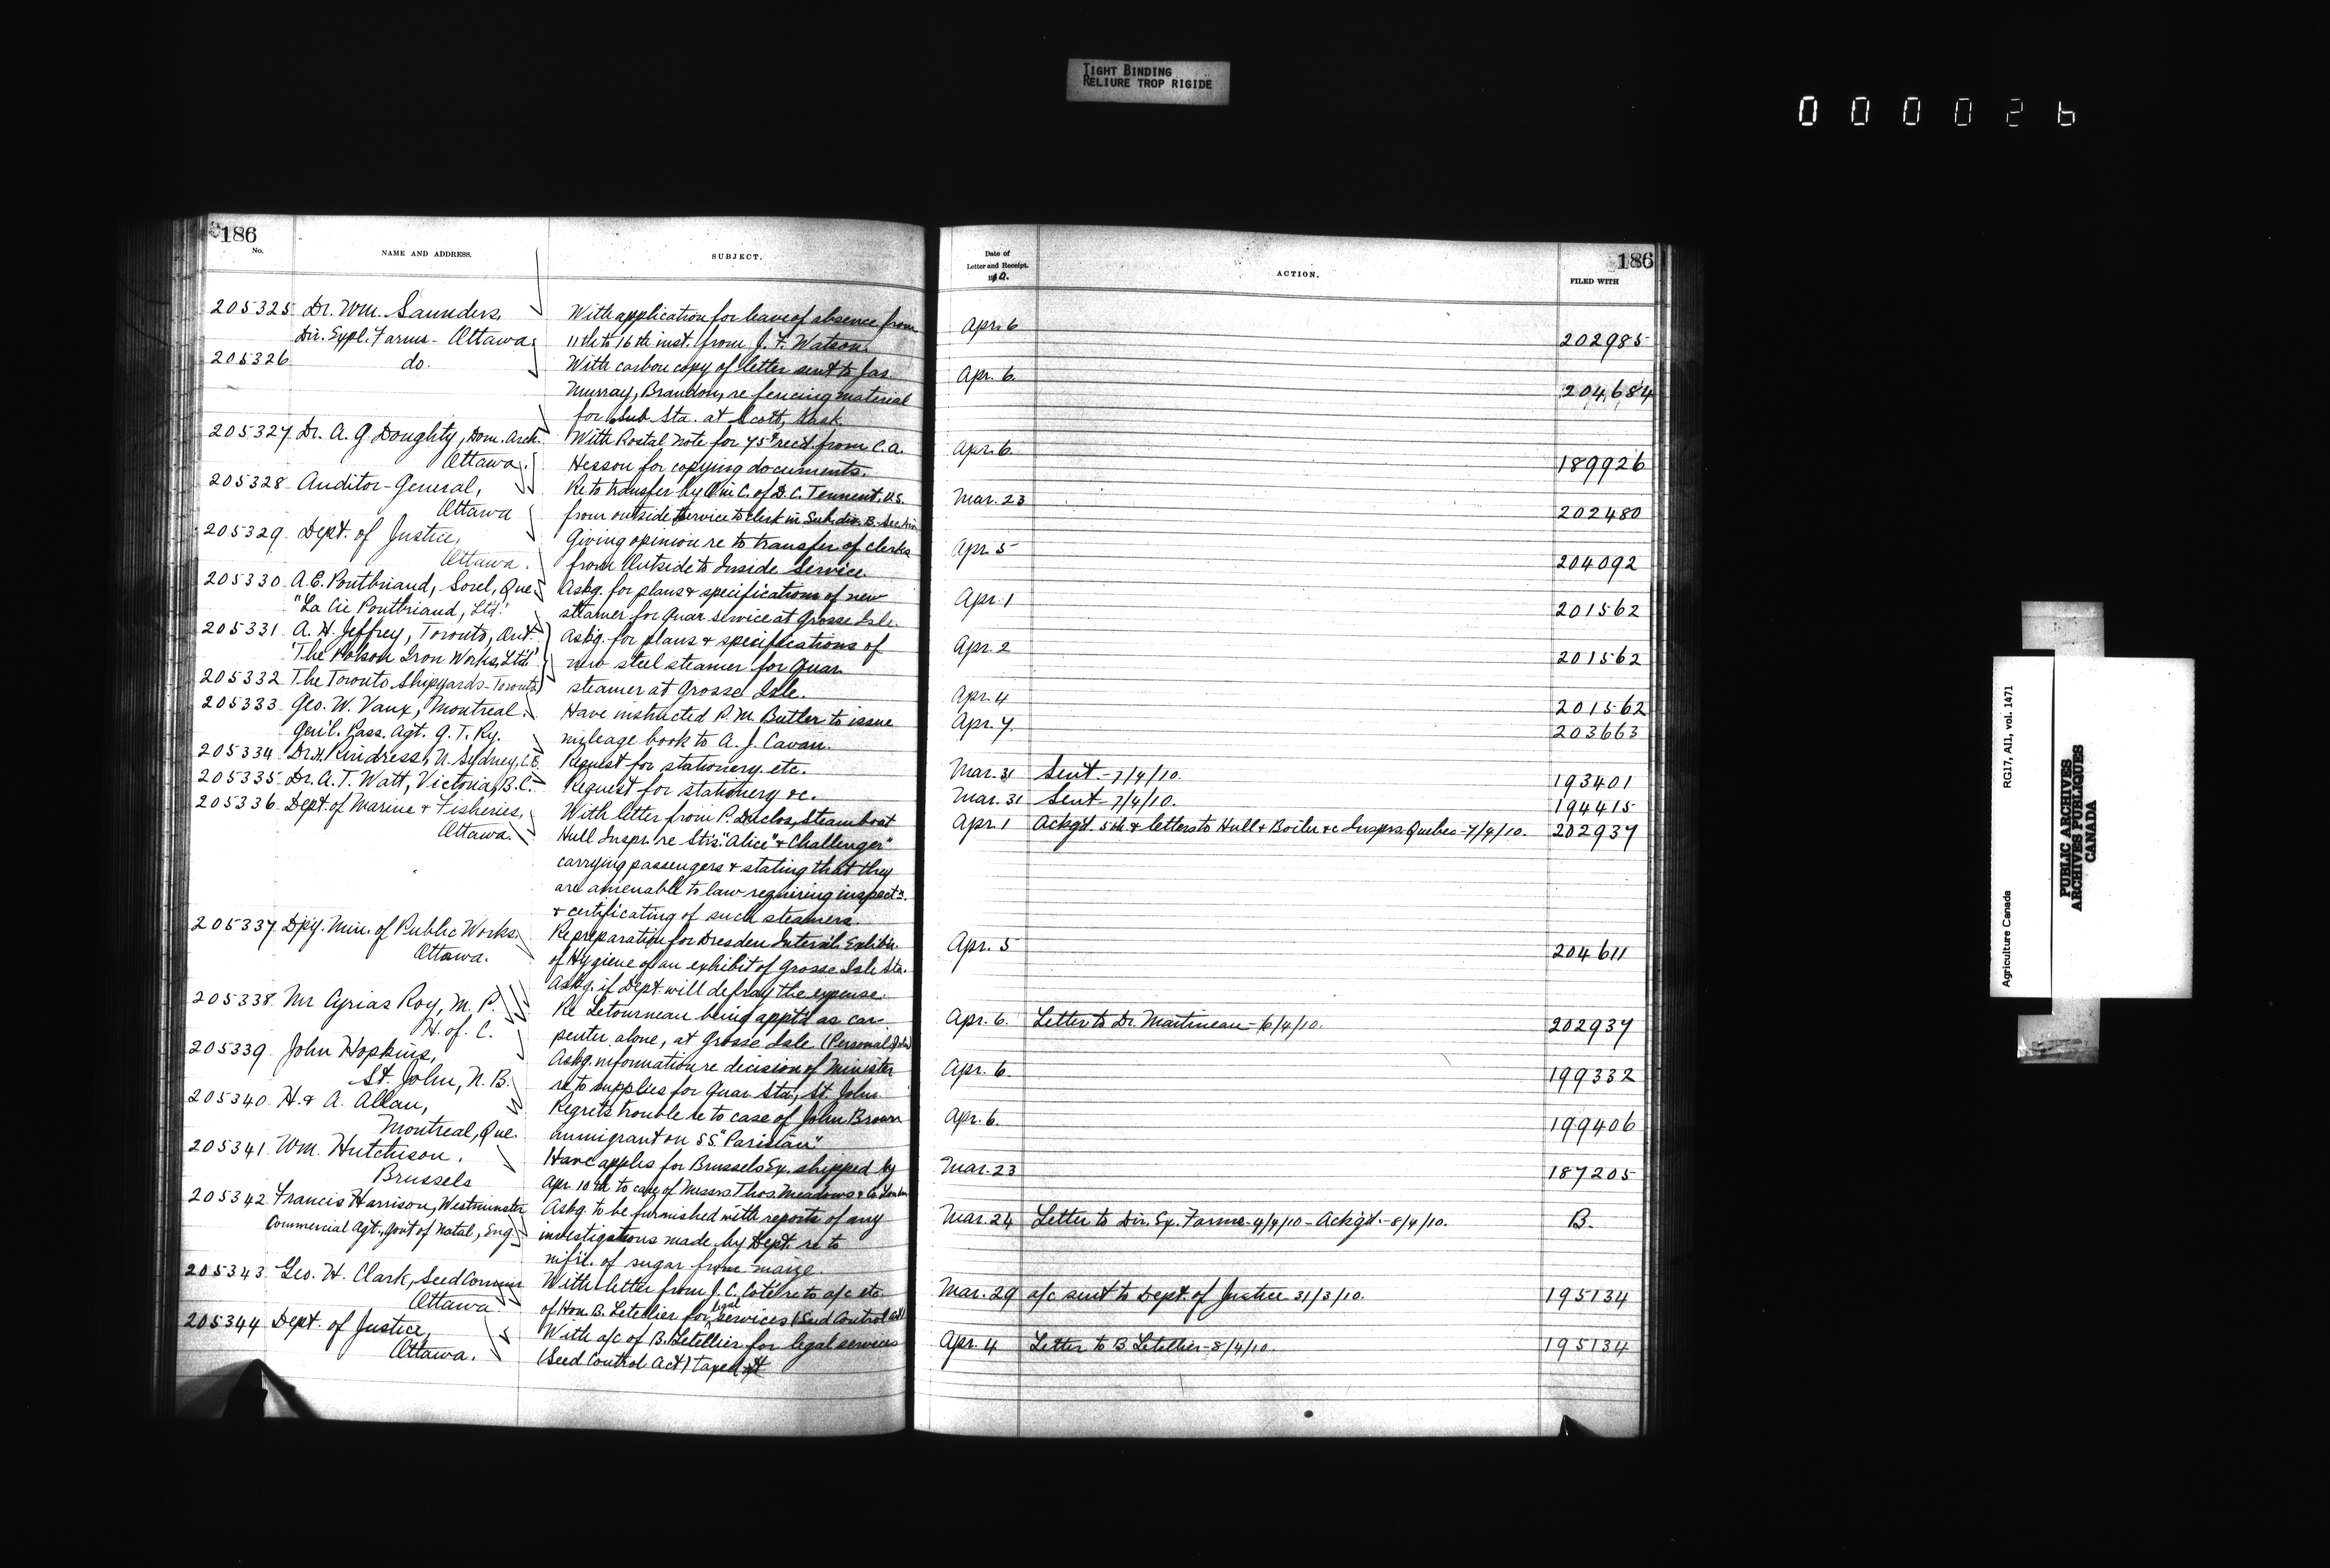 TIGHT BINDING
RELIURE TROP RIGIDE
000026
186
No.
NAME AND ADDRESS.
SUBJECT.
205325 Dr. Wm. Saunders,
Dir. Expl. Farms - Ottawa
With application for leave of absence from
11th to 16th inst. from J. F. Watson.
205326 do.
With carbon copy of letter sent to Jas.
Murray, Brandon, re fencing material
for Sub Sta. at Scott, Sask.
205327 Dr. A. G. Doughty, Dom. Arch.
Ottawa.
With Postal Note for 75c recd. from C. A.
Hesson for copying documents.
205328 Auditor-General,
Ottawa
Re to transfer by O in C. of D. C. Tennent, V.S.
from outside service to clerk in Subdiv. B. Section
205329 Dept. of Justice,
Ottawa.
Giving opinion re to transfer of clerks
from Outside to Inside Service.
205330 A. E. Pontbriand, Sorel, Que.
"La Cie Pontbriand, Ltd."
Askg. for plans & specifications of new
steamer for Quar. service at Grosse Isle.
205331 A. H. Jeffrey, Toronto, Ont.
"The Polson Iron Works, Ltd."
Askg. for plans & specifications of
new steel steamer for Quar.
205332 The Toronto Shipyards - Toronto
steamer at Grosse Isle.
205333 Geo. W. Vaux, Montreal.
Gen'l. Pass. Agt. G. T. Ry.
Have instructed P. M. Butler to issue
mileage book to A. J. Cavan.
205334 Dr. H. Rindress, N. Sydney, C.B.
Request for stationery etc.
205335 Dr. A. T. Watt, Victoria, B.C.
Request for stationery &c.
205336 Dept. of Marine & Fisheries,
Ottawa.
With letter from P. Duclos, Steamboat
Hull Inspr. re Strs. "Alice" & "Challenger"
carrying passengers & stating that they
are amenable to law requiring inspectn.
& certificating of such steamers.
205337 Dpy. Min. of Public Works.
Ottawa.
Re preparation for Dresden Intern'l. Exhibn.
of Hygiene of an exhibit of Grosse Isle Sta.
Askg. if Dept. will defray the expense.
205338 Mr Cyrias Roy, M. P.
H. of C.
Re Letourneau being appt'd as car-
penter alone, at Grosse Isle (Personal
205339 John Hopkins,
St. John, N. B.
Askg. information re decision of Minister
re to supplies for Quar. Sta., St. John.
205340 H. & A. Allan,
Montreal, Que.
Regrets trouble re to case of John Brown
immigrant on S.S. "Parisian"
205341 Wm. Hutchison.
Brussels
Have apples for Brussels Ex. shipped by
Apr. 10th to care of Messrs Thos. Meadows & Co. London
205342 Francis Harrison, Westminster
Commercial Agt., Govt of Natal, Eng.
Askg. to be furnished with reports of any
investigations made by Dept. re to
mf'r. of sugar from maize.
205343 Geo. H. Clark, Seed Commr
Ottawa
With letter from J. C. Coté re to a/c etc
of Hon. B. Letellier for legal services (Seed Control Act)
205344 Dept. of Justice,
Ottawa.
With a/c of B. Letellier for legal services
(Seed Control Act) taxed
186
Date of
Letter and Receipt.
1910.
ACTION.
FILED WITH
Apr. 6 202985
Apr. 6. 204684
Apr. 6. 189926
Mar. 23 202480
Apr. 5 204092
Apr. 1 201562
Apr. 2 201562
Apr. 4 201562
Apr. 7. 203663
Mar. 31 Sent. - 7/4/10. 193401
Mar. 31 Sent - 7/4/10. 194415
Apr. 1 Ackg'd. 5th & letters to Hull & Boiler &c Insprs. Quebec - 7/4/10. 202937
Apr. 5 204611
Apr. 6. Letter to Dr. Martineau - 6/4/10. 202937
Apr. 6. 199332
Apr. 6. 199406
Mar. 23 187205
Mar. 24 Letter to Dir. Ex. Farms - 4/4/10 - Ackg'd. - 8/4/10. B.
Mar. 29 a/c sent to Dept. of Justice 31/3/10. 195134
Apr. 4 Letter to B. Letellier - 8/4/10. 195134
Agriculture Canada
RG17, AII, vol. 1471
PUBLIC ARCHIVES
ARCHIVES PUBLIQUES
CANADA